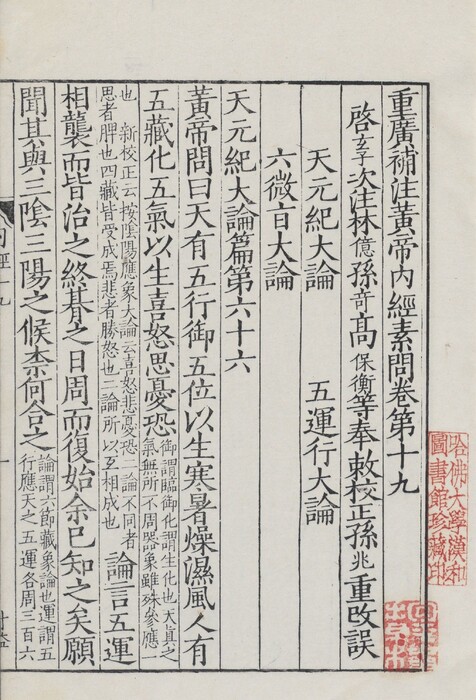 重廣補注黃帝內經素問卷第十九
啓玄子次注林億孫奇高保衡等奉敕校正孫兆重改誤
天元紀大論 五運行大論
六微旨大論
天元紀大論篇第六十六
黃帝問曰天有五行御五位以生寒暑燥濕風人有
五藏化五氣以生喜怒思憂恐
御謂臨御化謂生化也天真之
氣無所不周器象雖殊參應一
也 新校正云按陰陽應象大論云喜怒悲憂恐二論不同者
思者脾也四藏皆受成焉悲者勝怒也二論所以互相成也
論言五運
相襲而皆治之終朞之日周而復始余已知之矣願
聞其與三陰三陽之候柰何合之
論謂六節藏象論也運謂五
行應天之五運各周三百六
內經十九
哈佛大學漢和
圖書館珍藏印